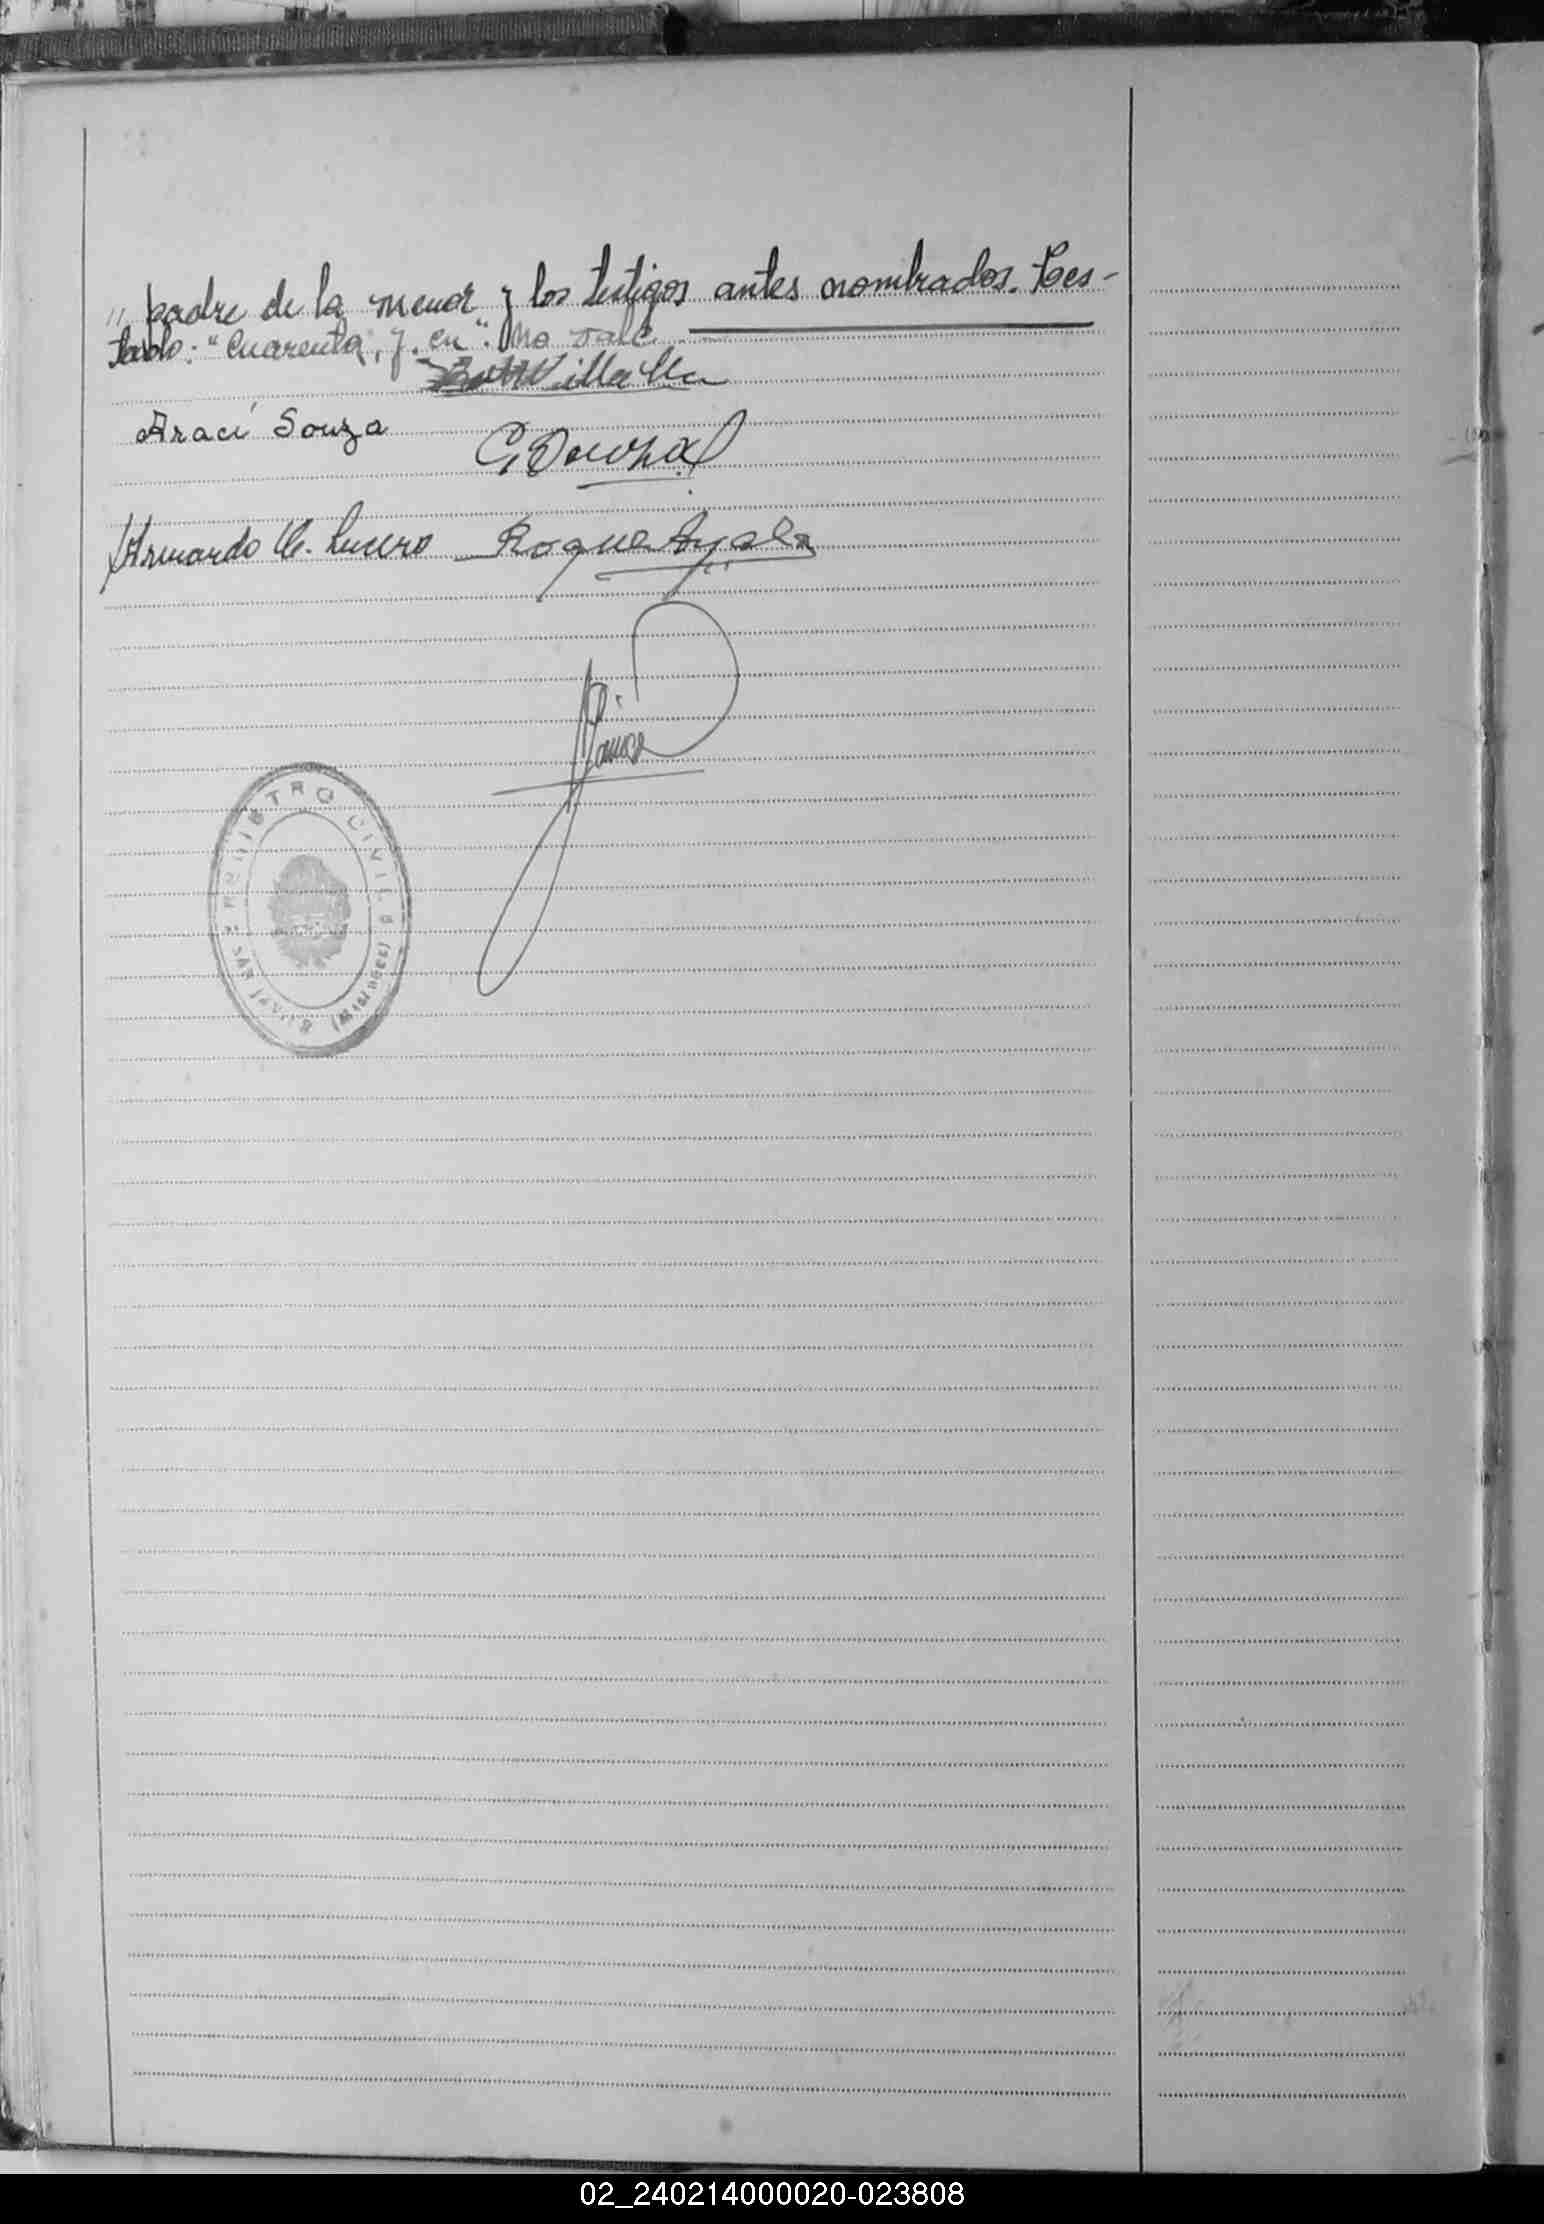 " padre de la menor y los testigos antes nombrados. Tes-
tado: "Cuarenta, y, en": No vale
Villalba
Araci Souza
Armando C. Lucero Roque Ayala
REGISTRO CIVIL
SAN JAVIER (MISIONES)
02_240214000020-023808